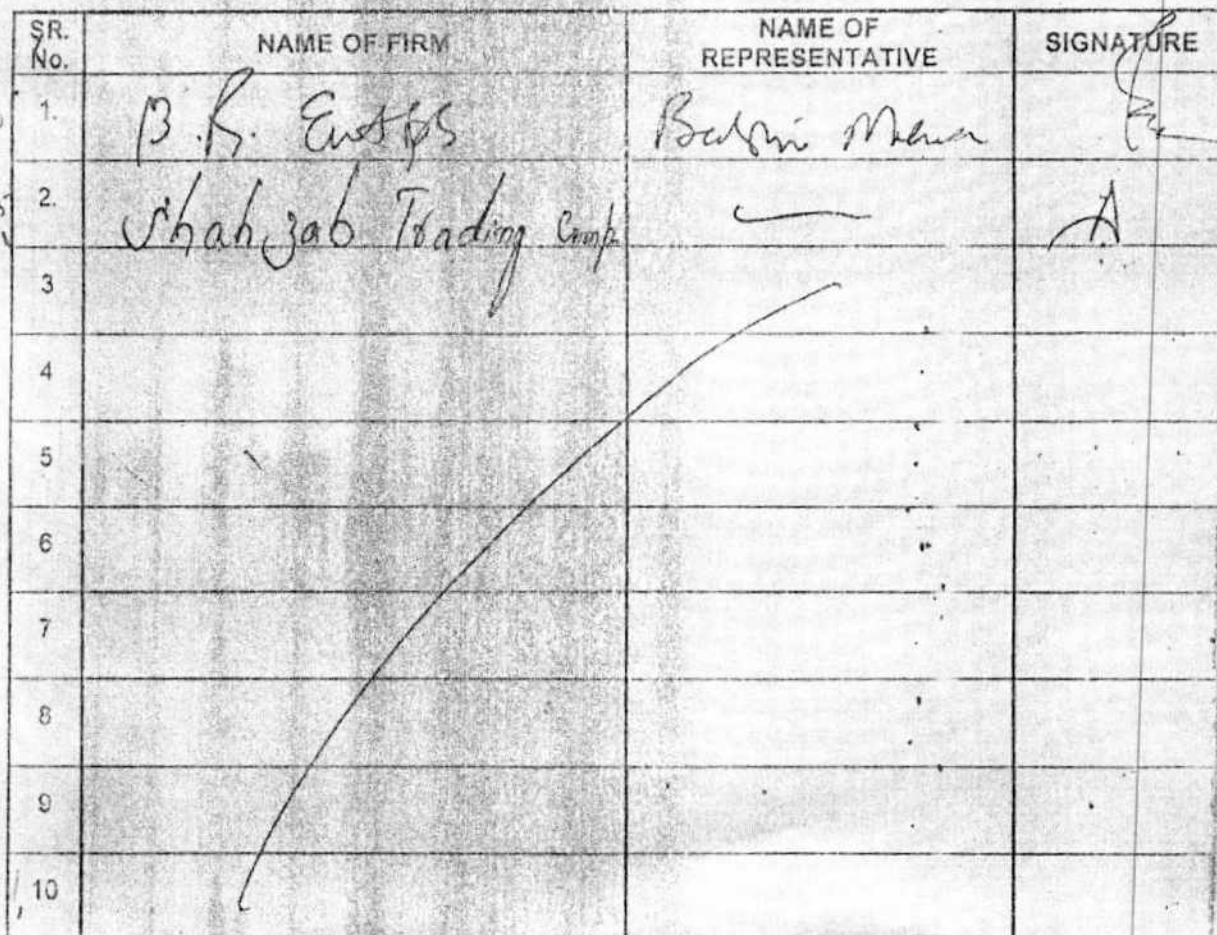 SR. No. NAME OF FIRM NAME OF REPRESENTATIVE SIGNATURE
1. B.R. Entps
2. Shahzab Trading Comp.
3
4
5
6
7
8
9
10